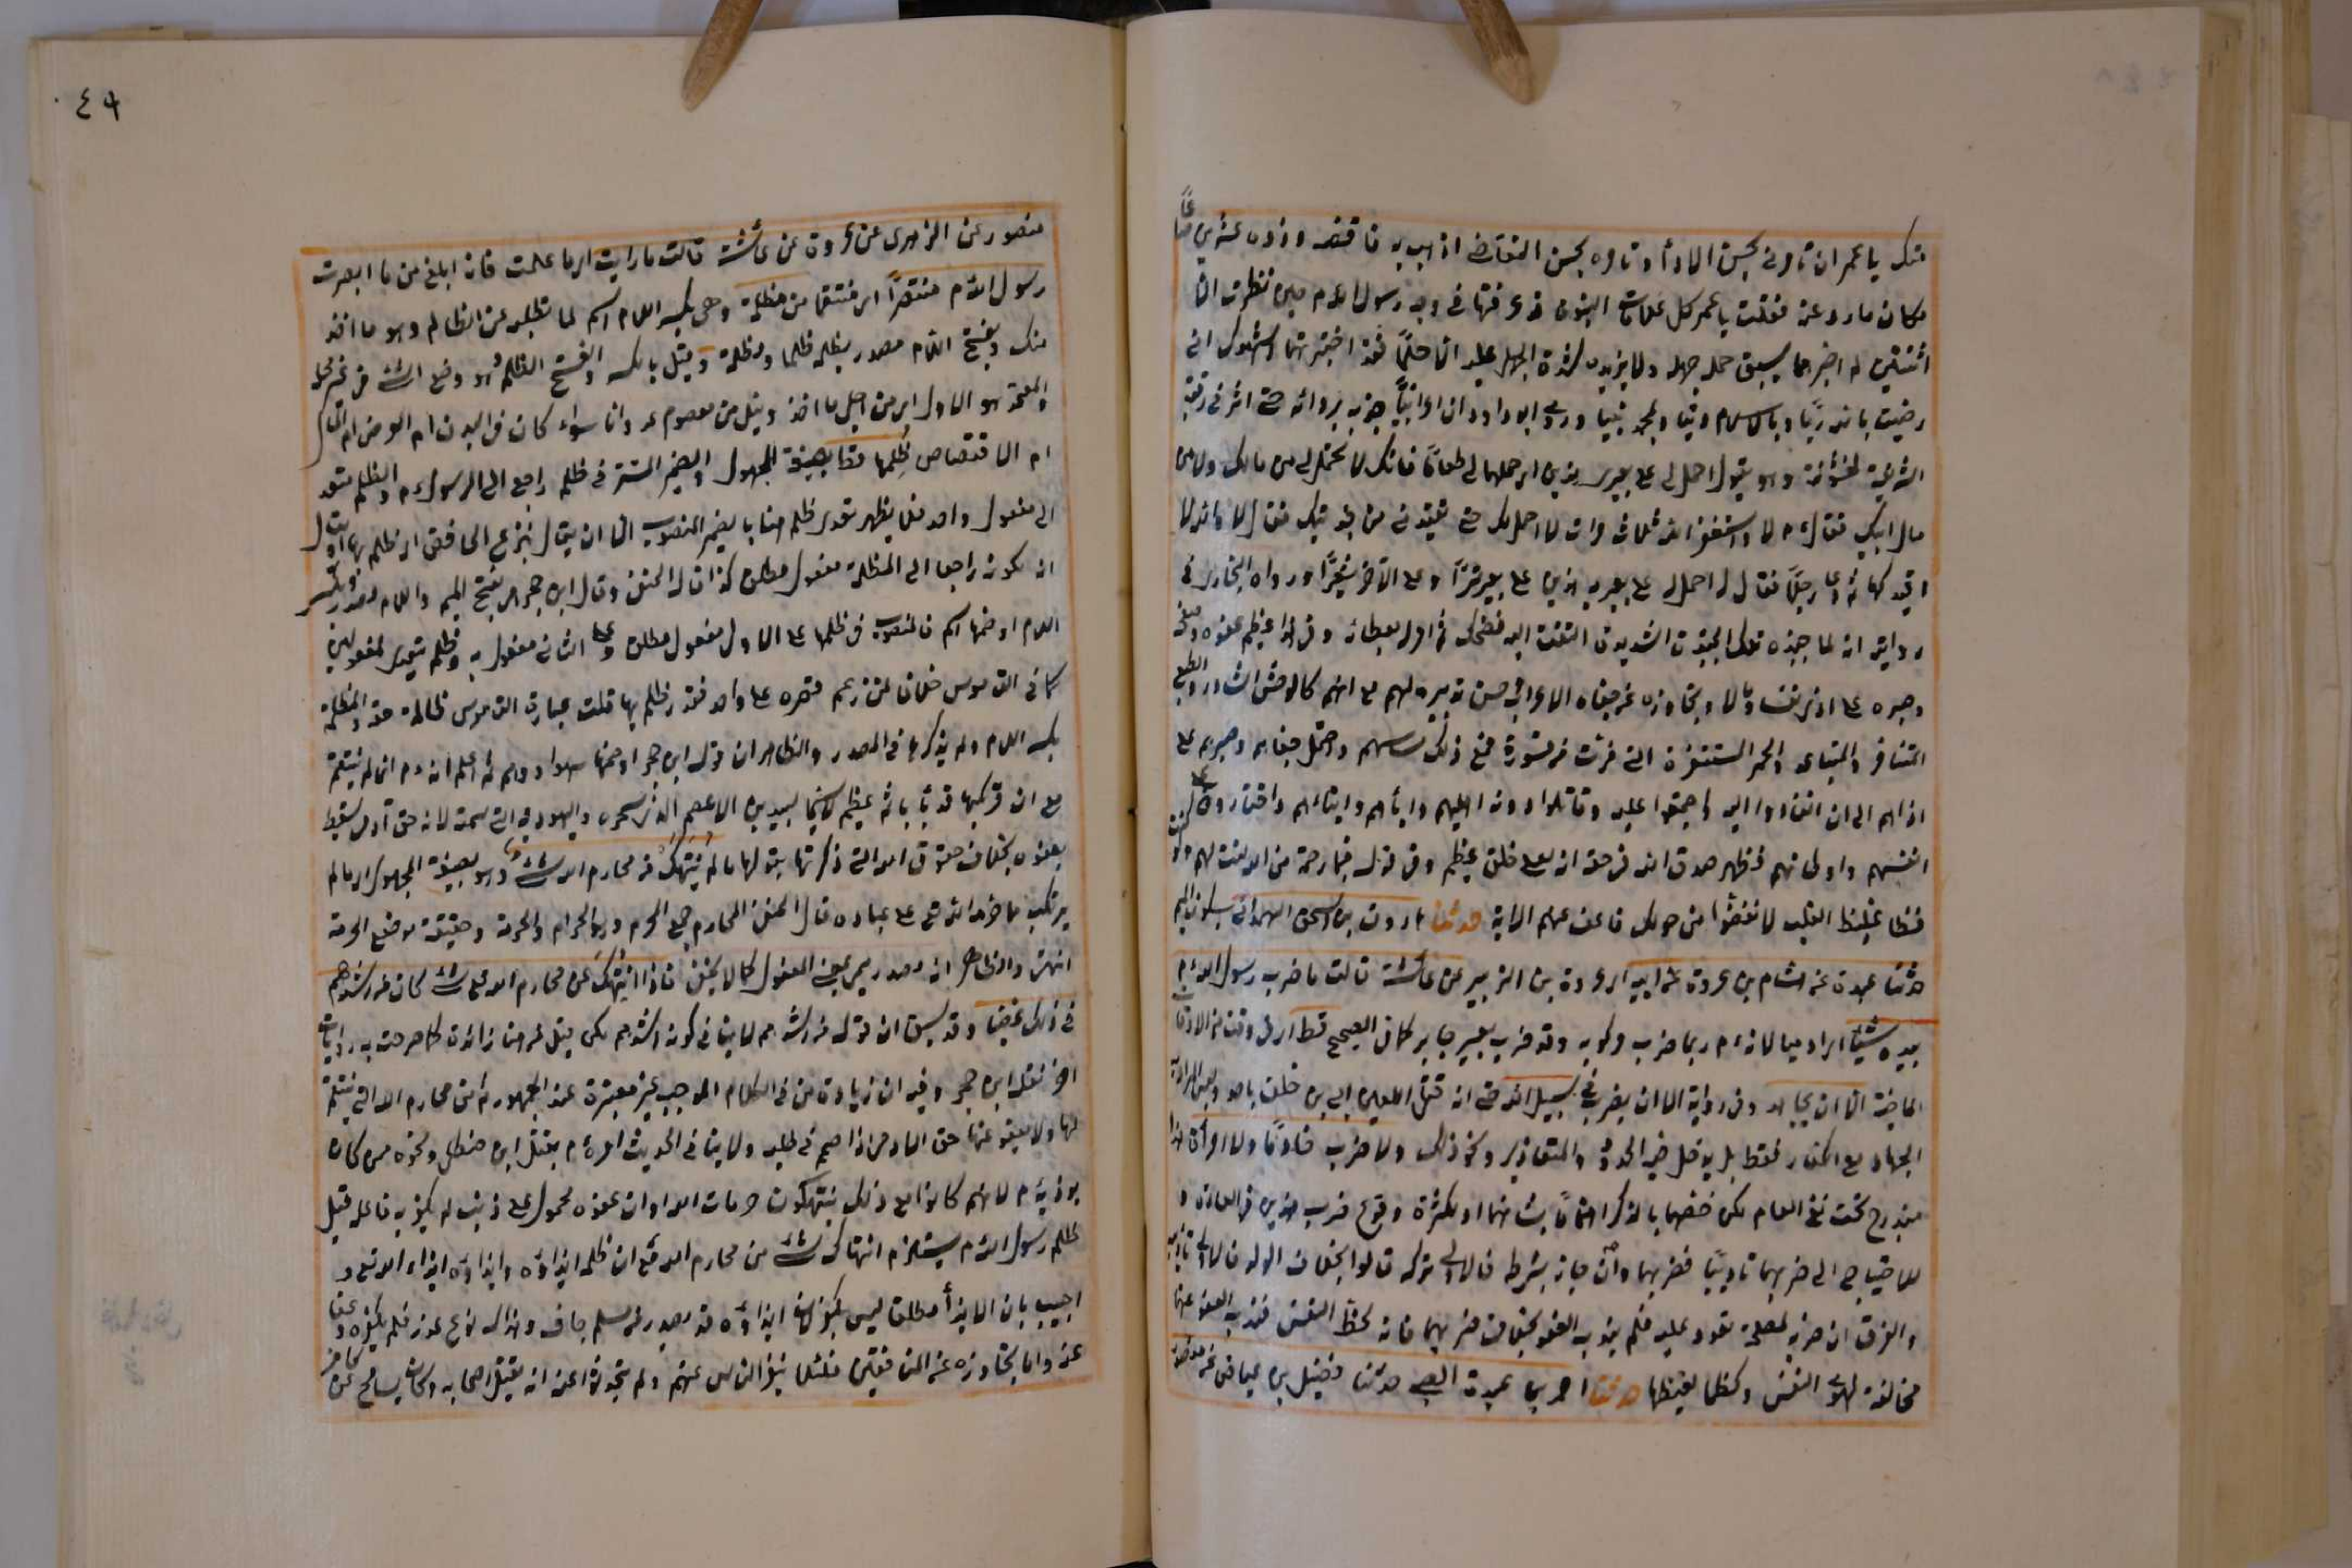 منك يا عمر ان تامرني بحسن الاداء وتامره بحسن التقاضى اذهب به فاقضه وزده عشرين صاعا
مكان ما روعته ففعلت يا عمر كل علامات النبوة قد عرفتها في وجه رسول الله م حين نظرت الا
اثنتين لم اخبرهما يسبق حلمه جهله ولا يزيده شدة الجهل عليه الا حلما فقد اختبرتهما اشهدك اني
رضيت بالله ربا وبالاسلام دينا وبمحمد نبيا وروى ابو داود ان اعرابيا جبذه بردائه حتى اثر في رقبته
الشريفة لخشونته وهو يقول احمل لي على بعيري هذين اى حملهما لي طعاما فانك لا تحمل لي من مالك ولا من
مال ابيك فقال م لا واستغفر الله ثلاث مرات لا احملك حتى تقيدني من جبذتك فقال لا والله لا
اقيدكها ثم دعا رجلا فقال له احمل له على بعيريه هذين على بعير تمرا وعلى الآخر شعيرا ورواه البخارى في
روايته انه لما جبذه تلك الجبذة الشديدة التفت اليه فضحك ثم امر له بعطاء وفي هذا عظيم عفوه وصفحه
وصبره على الاذى نفسا ومالا وتجاوزه عن جفاة الاعراب وحسن تدبيره لهم مع انهم كالوحش الشارد والطبع
المتنافر والمتباعد والحمر المستنفرة التي فرت من قسورة فمع ذلك ساسهم واحتمل جفاهم وصبرهم على
اذاهم الى ان انقادوا اليه واجتمعوا عليه وقاتلوا دونه اهليهم وآباءهم وابناءهم واختاروه على
انفسهم واوطانهم فظهر صدق الله في حقه انك لعلى خلق عظيم وفي قوله فبما رحمة من الله لنت لهم ولو كنت
فظا غليظ القلب لانفضوا من حولك فاعف عنهم الاية حدثنا هارون بن اسحق الهمداني بسكون الميم
حدثنا عبدة عن هشام بن عروة عن ابيه اى عروة بن الزبير عن عائشة قالت ما ضرب رسول الله م
بيده شيئا اى ادميا لانه م ربما ضرب مركوبه وقد ضرب بعير جابر كما في الصحيح قط اى في وقت من الاوقات
الماضية الا ان يجاهد وفي رواية الا ان يضرب في سبيل الله حتى انه قتل اللعين ابي بن خلف باحد وليس المراد به
الجهاد مع الكفار فقط بل يدخل فيه الحدود والتعازير ونحو ذلك ولا ضرب خادما ولا امرأة هذا
مندرج تحت نفي العام لكن خصهما بالذكر اهتماما بشانهما او لكثرة وقوع ضرب هذين في العادة و
للاحتياج الى ضربهما تاديبا فضربهما وان جاز بشرطه فالاولى تركه قالوا بخلاف الولد فالاولى تاديبه
والفرق ان ضربه لمصلحة تعود عليه فلم يندب العفو بخلاف ضربهما فانه لحظ النفس فندب العفو عنهما
مخالفة لهوى النفس وكظما لغيظها حدثنا احمد بن عبدة الضبي حدثنا فضيل بن عياض عن منصور
٤٩
منصور عن الزهرى عن عروة عن عائشة قالت ما رايت اى ما علمت فانه ابلغ من ما ابصرت
رسول الله م منتصرا اى منتقما من مظلمة وهي بكسر اللام اسم لما تطلبه عن الظالم وهو ما اخذ
منك وبفتح اللام مصدر يظلم ظلما ومظلمة وقيل بالكسر والفتح الظلم وهو وضع الشئ في غير محله
والمعتمد هو الاول اى من اجل ما اخذ ونيل من معصوم عدوانا سواء كان في البدن ام العرض ام المال
ام الاقتصاص ظلمها قط بصيغة المجهول والضمير المستتر في ظلم راجع الى الرسول م والظلم متعد
الى مفعول واحد فلا يظهر تعدى ظلم هنا بالضمير المنصوب الا ان يقال بنزع الخافض اى ظلم بها او يقال
انه يكون راجعا الى المظلمة مفعول مطلق كذا قال الحنفي وقال ابن حجر هي بفتح الميم واللام مصدر وبكسر
اللام او ضمها اسم فالمنصوب في ظلمها على الاول مفعول مطلق وعلى الثاني مفعول به وظلم يتعدى لمفعولين
كما في القاموس خلافا لمن زعم قصره على واحد فقدر ظلم بها قلت عبارة القاموس ظالمه حقه والمظلمة
بكسر اللام ولم يذكرها في المصدر والظاهر ان قول ابن حجر او ضمها سهو او وهم ثم اعلم انه م انما لم ينتقم
مع ان مرتكبها قد باء باثم عظيم لاسيما لبيد بن الاعصم الذى سحره واليهودية التي سمته لانه حق آدمي يسقط
بعفوه بخلاف حقوق الله التي ذكرتها بقولها ما لم ينتهك من محارم الله شئ وهو بصيغة المجهول اى ما لم
يرتكب ما حرم الله تعالى على عباده قال الحنفي المحارم جمع المحرم وهو الحرام والحرمة وحقيقته موضع الحرمة
انتهى والظاهر انه مصدر ميمي بمعنى المفعول كما لا يخفى فاذا انتهك من محارم الله تعالى شئ كان من اشدهم
في ذلك غضبا وقد سبق ان قوله من اشدهم لا ينافي كونه اشدهم لكن قيل من هنا زائدة كما صرحت به رواية
اخرى نقله ابن حجر وفيه ان زيادة من في الكلام الموجب غير معتبرة عند الجمهور ثم من محارم الله التي ينتقم
لها ولا يعفو عنها حق الادمي اذا صمم في طلبه ولا ينافي الحديث امره م بقتل ابن خطل ونحوه ممن كان
يوذيه م لانهم كانوا مع ذلك ينتهكون حرمات الله او ان عفوه محمول على ذنب لم يكفر به فاعله قيل
ظلم رسول الله م يستلزم انتهاك شئ من محارم الله تعالى ان ظلمه ايذاؤه وايذاؤه ايذاء الله تعالى و
اجيب بان الايذاء مطلقا ليس بكفر لان ايذاؤه قد يصدر من مسلم جاف وهذا له نوع عذر فلم يكفره وعفا
عنه واما تجاوزه عن المنافقين فلئلا ينفر الناس عنهم ولم يتحدثوا عنه انه يقتل اصحابه وكان يسامح عن كافر